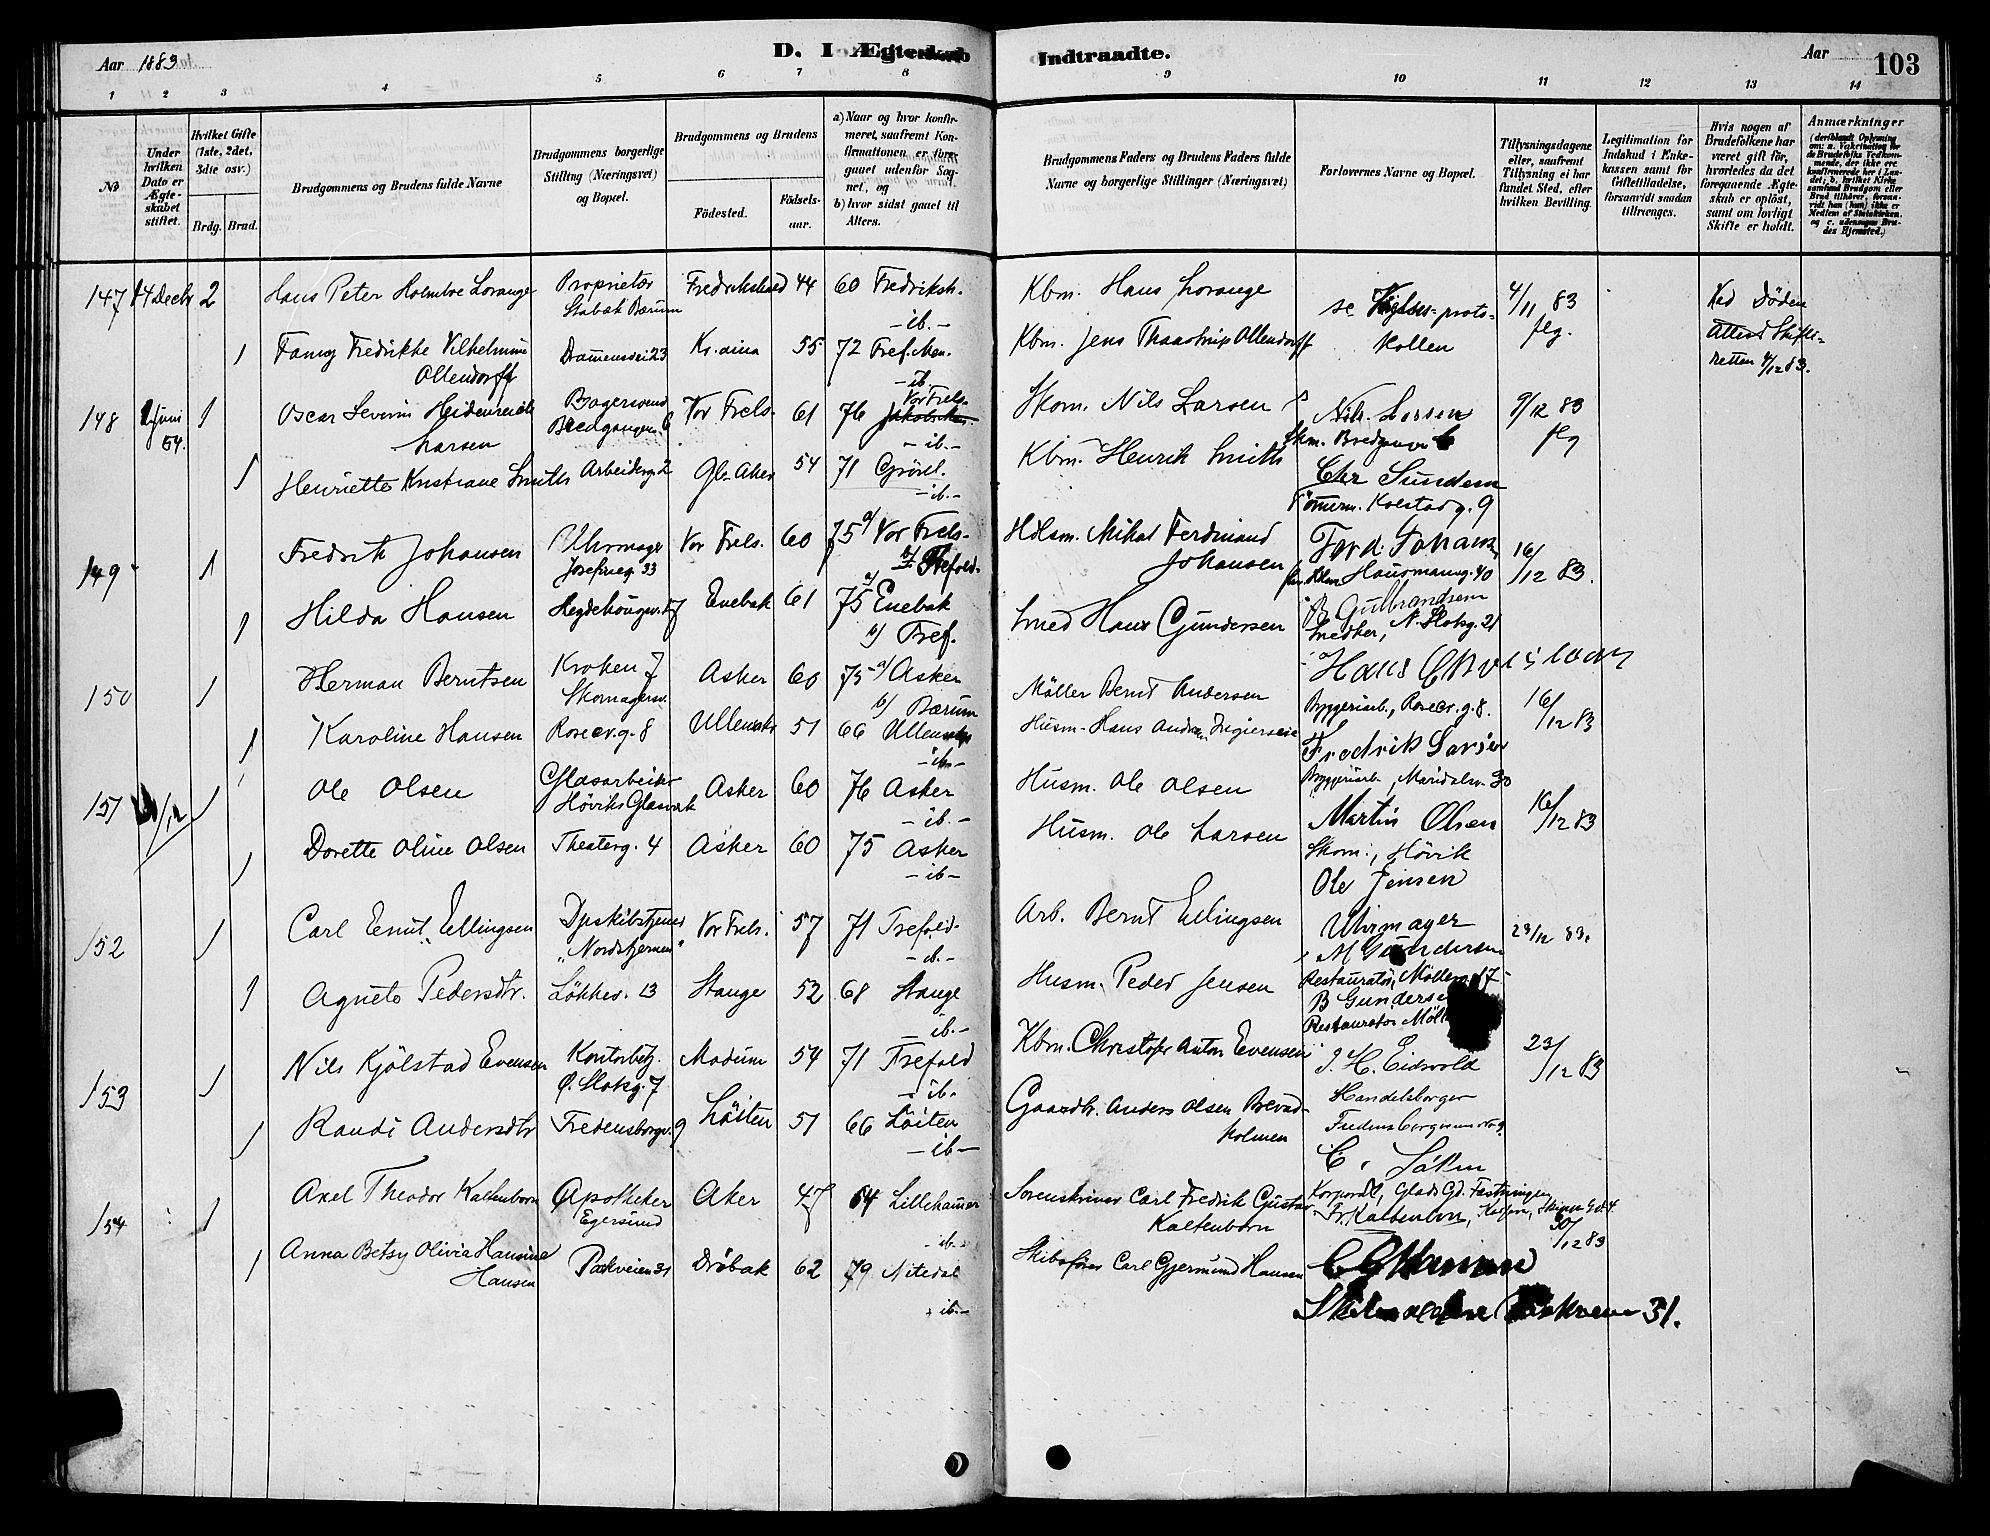 Aar 1883
D. I Ægteskab
Indtraadte.
Aar
103
1 2 3 4 5 6 7 8 9 10 11 12 13 14
No
Under hvilken Dato er Ægteskabet stiftet.
Hvilket Gifte (1ste, 2det, 3die osv.)
Brdg. Brud.
Brudgommens og Brudens fulde Navne
Brudgommens borgerlige Stilling (Næringsvei) og Bopæl.
Brudgommens og Brudens
Fødested.
Fødselsaar.
a) Naar og hvor konfirmeret, saafremt Konfirmationen er foregaaet udenfor Sognet, og
b) hvor sidst gaaet til Alters.
Brudgommens Faders og Brudens Faders fulde Navne og borgerlige Stillinger (Næringsvei)
Forlovernes Navne og Bopæl.
Tillysningsdagene eller, saafremt Tillysning ei har fundet Sted, efter hvilken Bevilling.
Legitimation for Indskud i Enkekassen samt for Giftetilladelse, forsaavidt saadan tiltrænges.
Hvis nogen af Brudefolkene har været gift før, hvorledes da det foregaaende Ægteskab er opløst, samt om lovligt Skifte er holdt.
Anmærkninger
147 14 Decbr 2 Hans Peter Holmboe Lorange Proprietær Stabæk Bærum Fredrikshald 44 60 Fredriksh. -ib.- Kbm. Hans Lorange se protokollen 4/11 83 flg. Ved Døden
1 Fanny Fredrikke Vilhelmine Ollendorff Drammensvei 23 Kr.ania 55 72 Tref. Men. -ib. Kbm. Jens Thaastrup Ollendorff Attest Skifteretten 4/12 83.
148 Juni 84. 1 Oscar Severin Heidenreich Larsen Bagersvend Bredgangen 6 Vor Frels. 61 76 Vor Frels. Jakobskir. -ib.- Skom. Nils Larsen Nils Larsen Skm. Bredgangen 6 9/12 83 flg
1 Henriette Kristiane Smith Arbeiderg. 2 Gl. Aker 54 71 Grønl. -ib.- Kbm. Henrik Smith Chr Sundem Tømerm. Kolstadg. 9
149 1 Fredrik Johansen Uhrmager Josefineg. 33 Vor Frels. 60 75 a/ Vor Frels. b/ Trefold. Hdlsm. Mikal Ferdinand Johansen Ferd. Johansen Hausmannsg. 40 16/12 83.
1 Hilda Hansen Hegdehougsv. 17 Enebak 61 75 a/ Enebak b/ Tref. Smed Hans Gundersen B Gulbrandsen Snedker, N. Slotsg. 21
150 1 Herman Berntsen Kroken 7 Skomagersv. Asker 60 75 a/ Asker b/ Bærum Møller Bernt Andersen Hans Byggeriarb., Rosecr.g. 8. 16/12 83
1 Karoline Hansen Rosecr.g. 8 Ullensaker 51 66 Ullensaker -ib.- Husm. Hans Fredrik Larsen Byggeriarb., Maridalsv. 30
151 /12 1 Ole Olsen Glasarbeider Høviks Glasværk Asker 60 76 Asker -ib.- Husm. Ole Olsen Martin Olsen Skom., Høvik 16/12 83
1 Dorette Oline Olsen Theaterg. 4 Asker 60 75 Asker -ib- Husm. Ole Larsen Ole Jensen
152 1 Carl Emil Ellingsen Dpskibstjener "Nordstjernen" Vor Frels. 57 71 Trefold. -ib.- Arb. Bernt Ellingsen Uhrmager M Gundersen Restauratør, Møllerg. 17 23/12 83.
1 Agnete Pedersdtr. Løkkev. 13 Stange 52 68 Stange -ib.- Husm. Peder Jensen B Gundersen Restauratør
153 1 Nils Kjølstad Evensen Kontorbetj. Ø. Slotsg. 7 Modum 54 71 Trefold -ib. Kbm. Christofer Anton Evensen J. H. Eidsvold Handelsborger Fredensborgveien No 9. 23/12 83
1 Randi Andersdtr Fredensborgv. 9 Løiten 51 66 Løiten -ib- Gaardbr. Anders Olsen Brevadholmen
154 1 Axel Theodor Kaltenborn Apotheker Egersund Aker 47 64 Lillehamer -ib.- Sorenskriver Carl Fredrik Gustav Kaltenborn Korporal, Fæstningen Fr. Kaltenborn, 30/12 83
1 Anna Betsy Olivia Hansine Hansen Parkveien 31 Drøbak 62 79 Nitedal -ib.- Skibsfører Carl Gjermund Hansen C G Hansen 31.